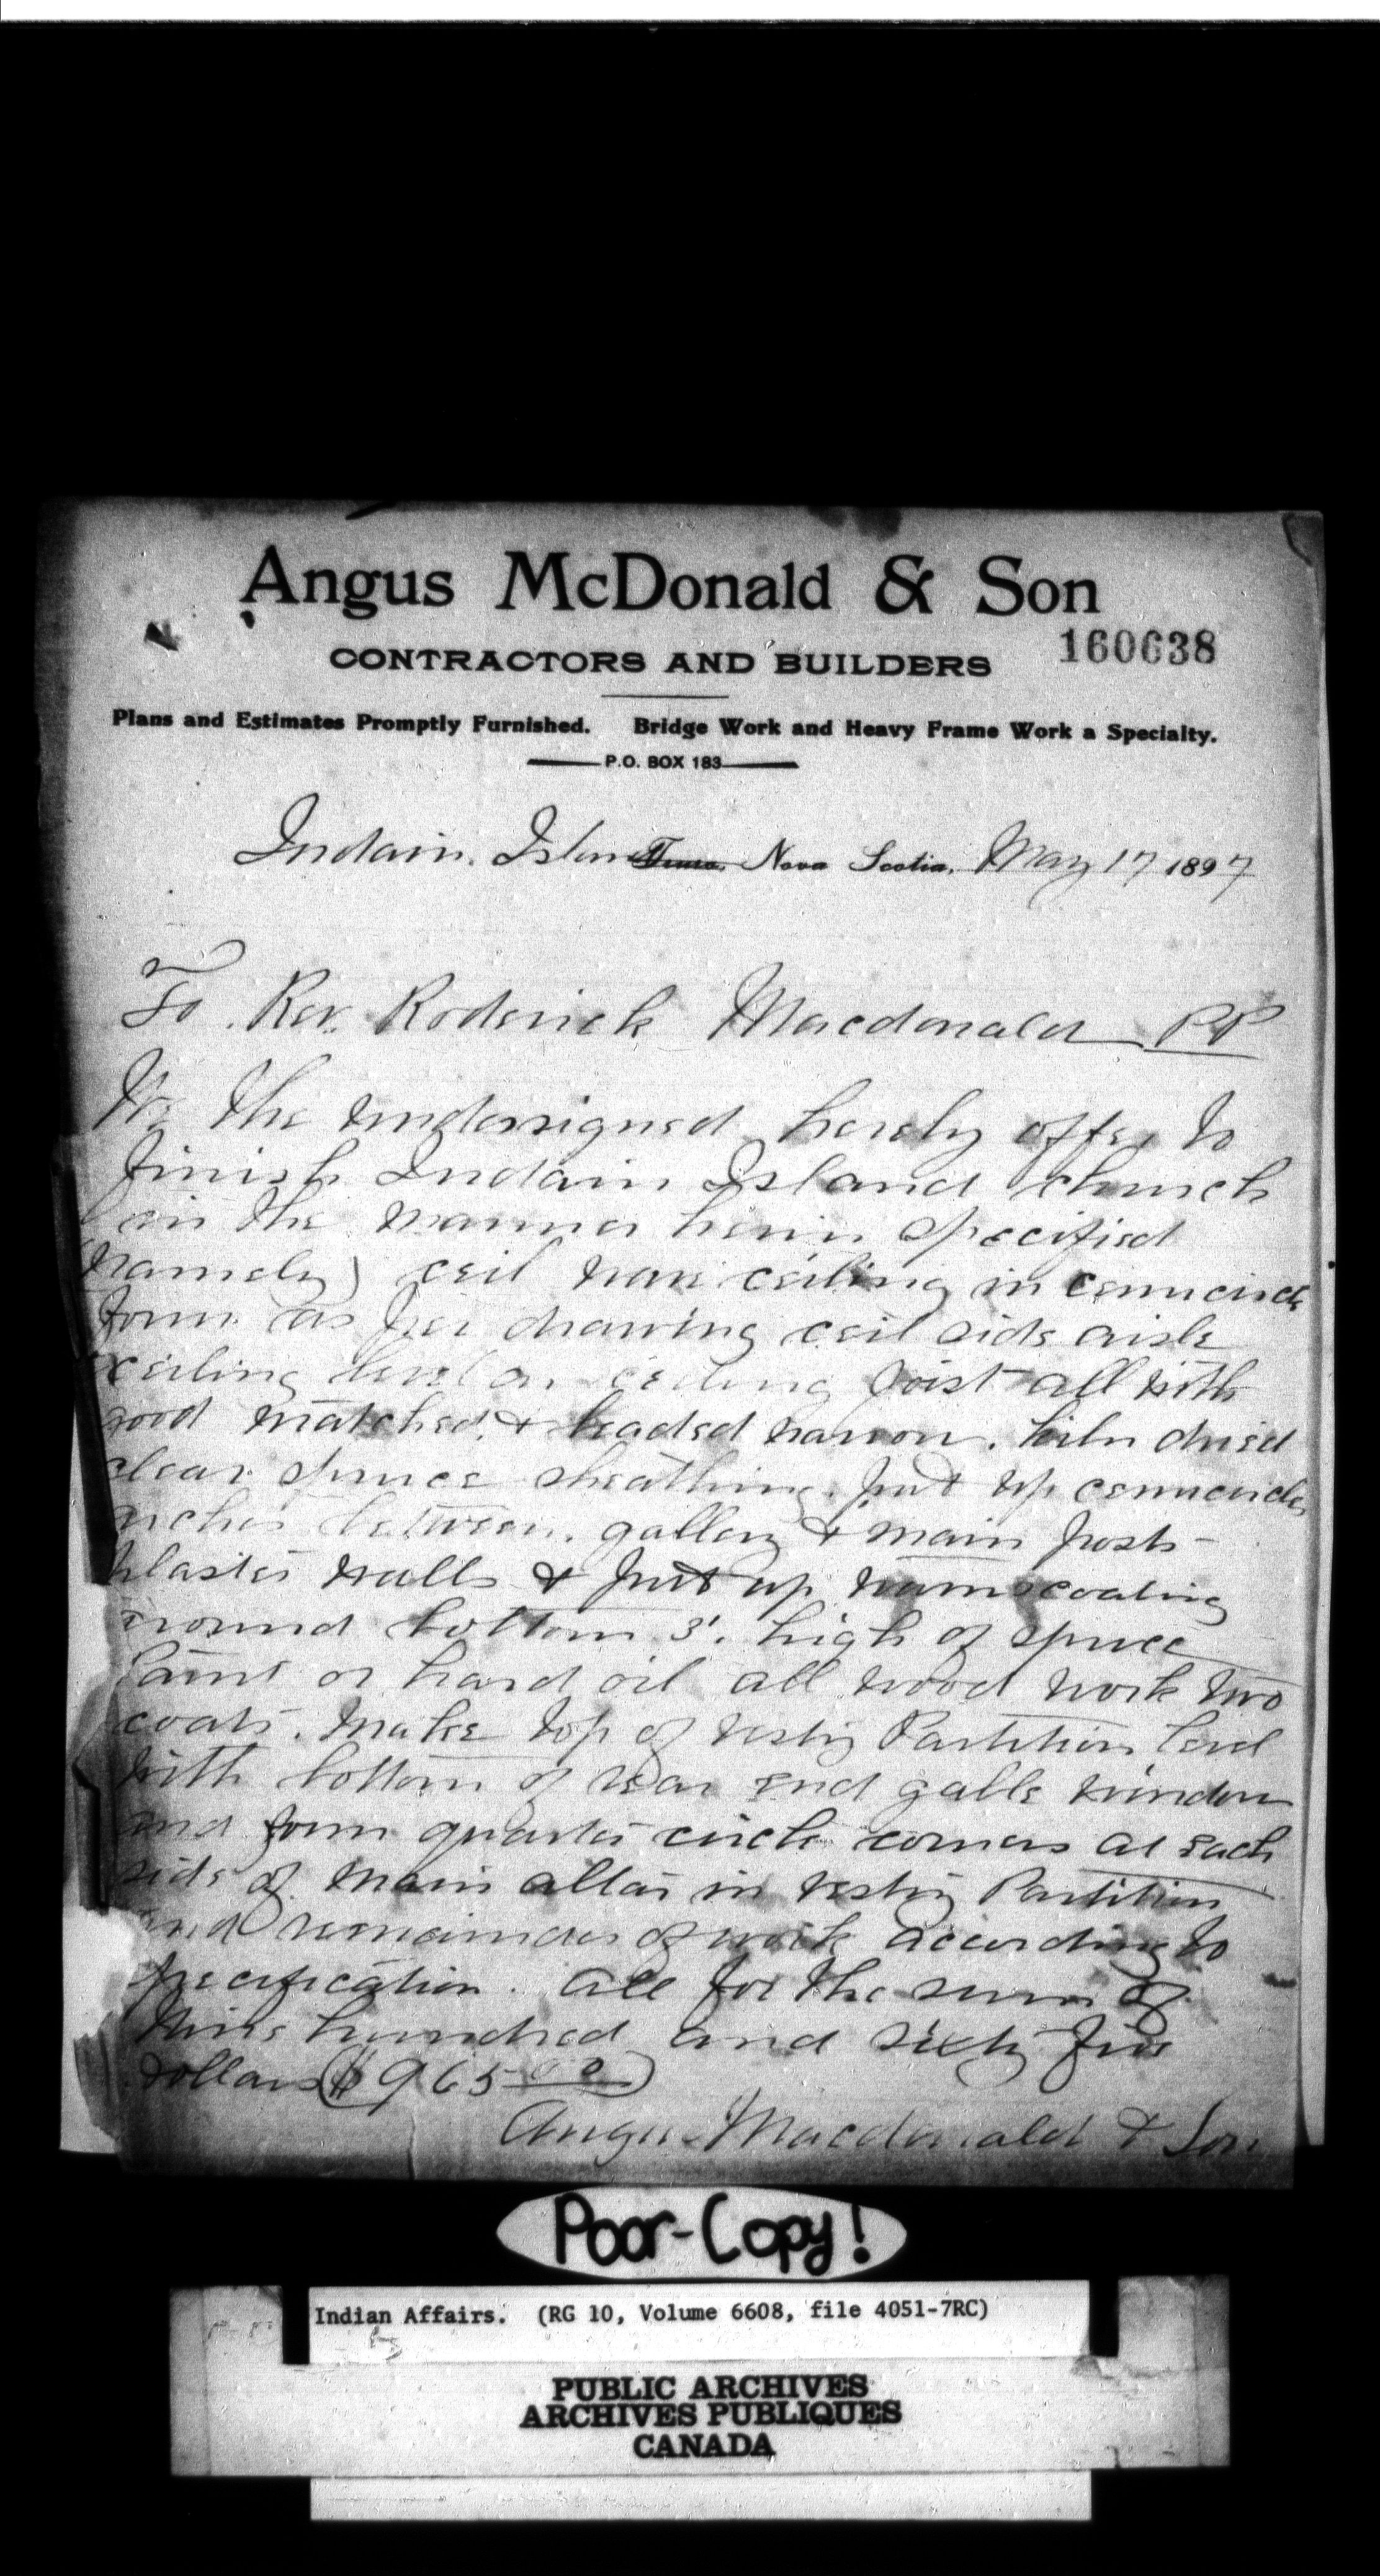 Angus McDonald & Son
160638
CONTRACTORS AND BUILDERS
Plans and Estimates Promptly Furnished. Bridge Work and Heavy Frame Work a Specialty.
P.O. BOX 183
Indain Island Truro, Nova Scotia, May 17 1897
To Rev. Roderick Macdonald PP
We the undersigned hereby offer to
finish Indain Island church
in the manner herin specified
(namely) ceil nave ceiling in cemicircle
form as per drawing ceil side aisle
ceiling level on ceiling joist all with
good matched & beaded narrow kiln dried
clear spruce sheathing. put up cemicircle
arches between gallery & main posts
plaster walls & put up wainscoating
around bottom 3' high of spruce
Paint or hard oil all wood work two
coats. Make top of vestry Partition level
with bottom of rear end gable window
and form quarter circle corners at each
side of main altar in vestry Partition
and remainder of work according to
specification. all for the sum of
Nine hundred and sixty five
dollars ($965.00)
Angus Macdonald & Son
Poor-Copy!
Indian Affairs. (RG 10, Volume 6608, file 4051-7RC)
PUBLIC ARCHIVES
ARCHIVES PUBLIQUES
CANADA